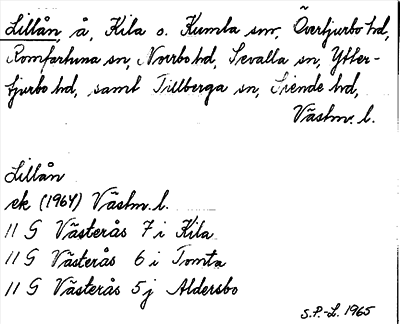 Lillån, å, Kila o. Kumla snr, Övertjurbo hd,
Romfartuna sn, Norrbo hd, Sevalla sn, Ytter-
tjurbo hd, samt Tillberga sn, Siende hd,
Västm. l.
Lillån
ek (1964) Västm. l.
11 G Västerås 7 i Kila
11 G Västerås 6 i Tomta
11 G Västerås 5 j Aldersbo
S.P.-L. 1965